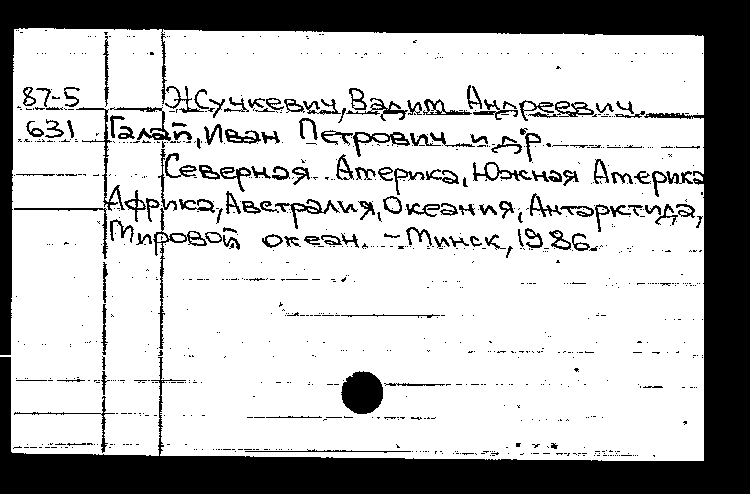 87-5 Жучкевич, Вадим Андреевич.
631 Галай, Иван Петрович и др.
Северная Америка, Южная Америка
Африка, Австралия, Океания, Антарктида,
Мировой океан. - Минск, 1986.